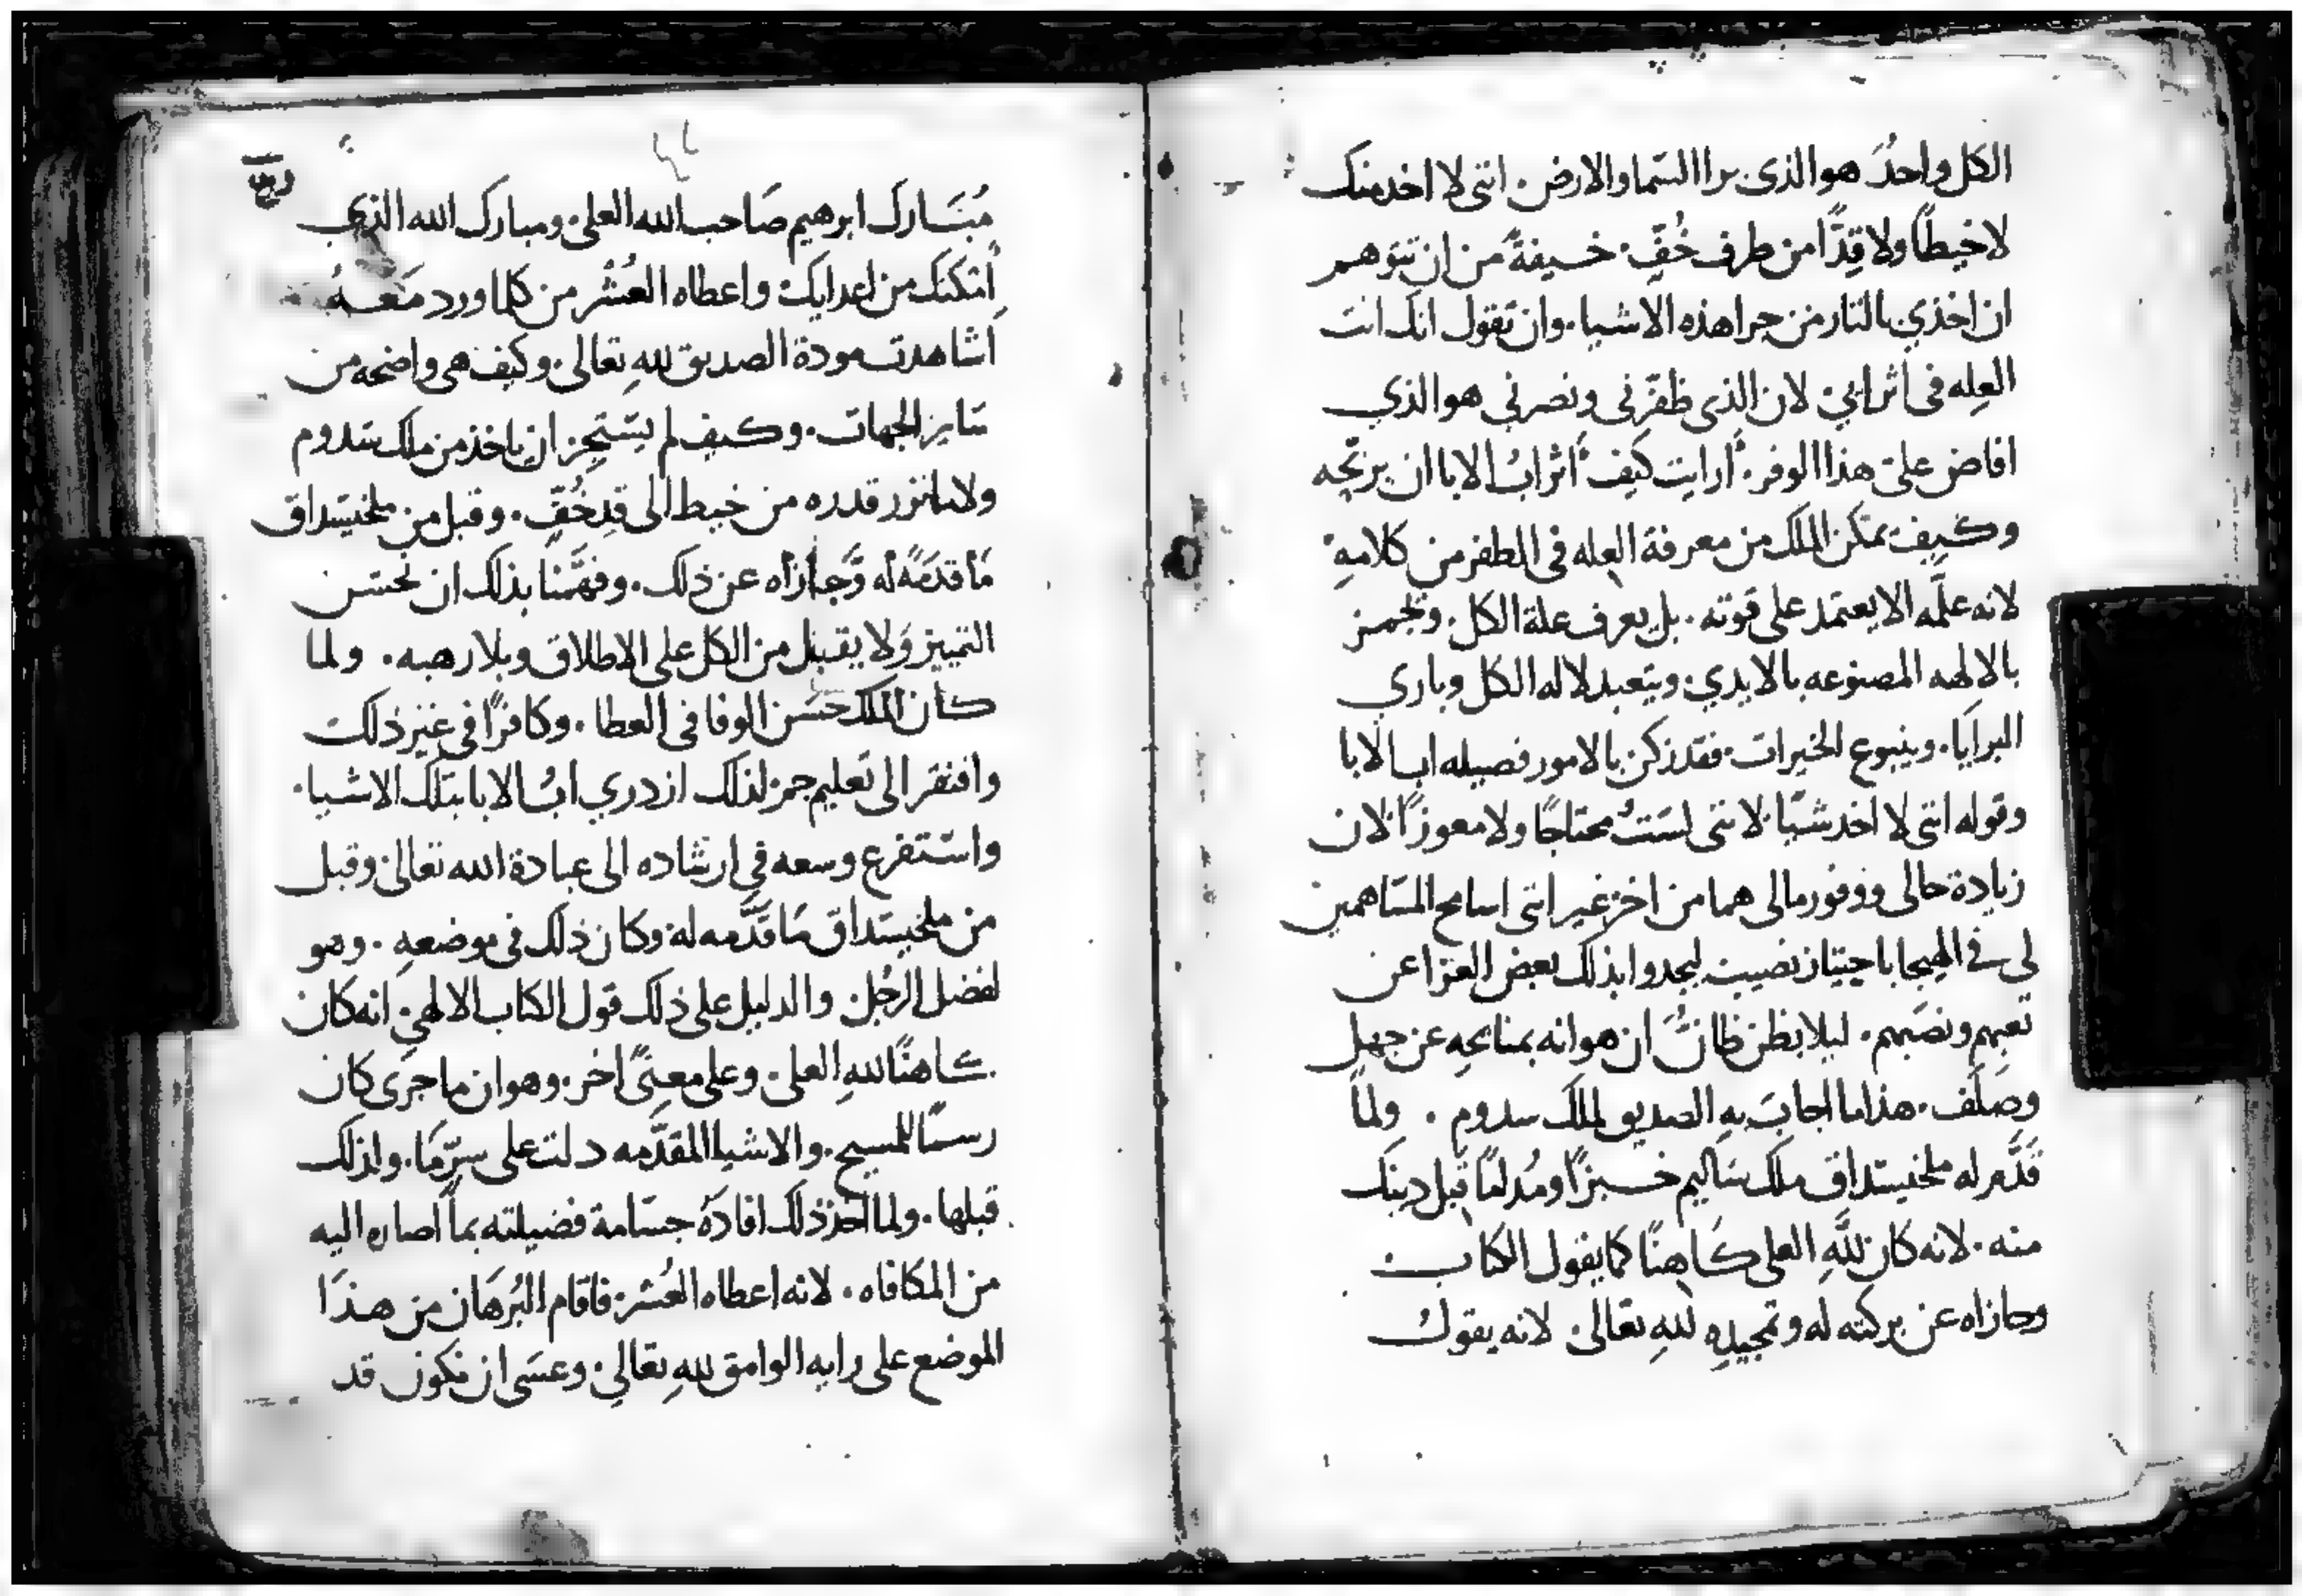 الكل واحدُ هو الذى برا السما والارض. اننى لا اخد منك
لا خيطًا ولا قِدًّا من طرف خُفٍّ. خسيفةً من ان تتوهم
ان اخذي بالثار من جرا هذه الاشيا. وان تقول انك انت
العِله فى اثرايئ لان الذى ظفّرنى ونصرنى هو الذي
افاض علىّ هذا الوفر. أرايت كيف أثر ابُ الابا ان يربحه
وكيف تمكن الملك من معرفة العله فى الظفر من كلامهِ
لانه علّمه الا يعتمد على قوته. بل يعرف علة الكل. ونجهز
بالالهه المصنوعه بالايدي. ويتعبد لاله الكل وباري
البرايَا. وينبوع الخيرات. فقد زكن بالامور فصيله اب الابا
وقوله اننى لا اخد شيّا. لاننى لستُ محتاجًا ولا معوزًا لان
زيادة حالى ووفور مالى هما من اخر غير اننى اسامح المسَاهمين
لى فى الهيجا باجتياز نصيب ليجدوا بذلك بعض العزا عن
تعبهم ونصَبهم. ليلا يظن ظانٌّ ان هوانه بمنايحهِ عن جهل
وصِلَف. هذا ما اجابَ بهِ الصديق لملك سدوم. ولما
قَدَّم له ملخيسداق ملك سَاليم خبزًا ومُدامًا قبل دينك
منه. لانه كان للهِ العلى كَاهنًا كما يقول الكتاب
وجازاه عن بركته له وتمجيدِه للهِ تعَالىٰ لانه يقول
مُبَارك ابرهيم صَاحب الله العلى ومبارك الله الذي
أمكنَك من اعدايك واعطاه العُشر من كلما ورد مَعهُ
اشاهدت مودة الصديق للهِ تعالى وكيف هى واضحه من
سَاير الجهات. وكيف لم يستجز ان ياخذ من ملك سَدوم
ولا ما نزر قدره من خيط الى قدِ خُفٍّ. وقبل من ملخيسَداق
مَا قدمَهُ له وَجازاه عن ذلك. وفهَّمنَا بذلك ان نُحسن
التمييز وَلا يقبَل من الكل على الاطلاق وبلا رهبه. ولما
كان الملك حسَن الوفا فى العطا. وكافرًا فى غير ذلك
وافتقر الى تعليم جمٍ لذلك ازدري ابُ الابا بتلك الاشيا.
واستفرغ وسعه في ارشاده الى عبادة الله تعالىٰ وقبل
من ملخيسَداق مَا قدَّمه له وكان ذلك فى موضعهِ. وهو
لفضل الرجُل والدليل على ذلك قول الكتاب الالهي انه كان
كاهنًا للهِ العلى. وعلى معنىً اخر. وهو ان ما جرَى كان
رسمًا للمسيح. والاشيا المقدَّمه دلت على سرٍّ مَا. ولذلك
قبلها. ولما اخذ ذلك افادَهُ جسَامة فضيلته بما اصاره اليه
من المكافاه. لانه اعطاه العُشر فاقام البُرهَان من هذَا
الموضع على رايه الوامق للهِ تعَالى وعسَى ان نكون قد